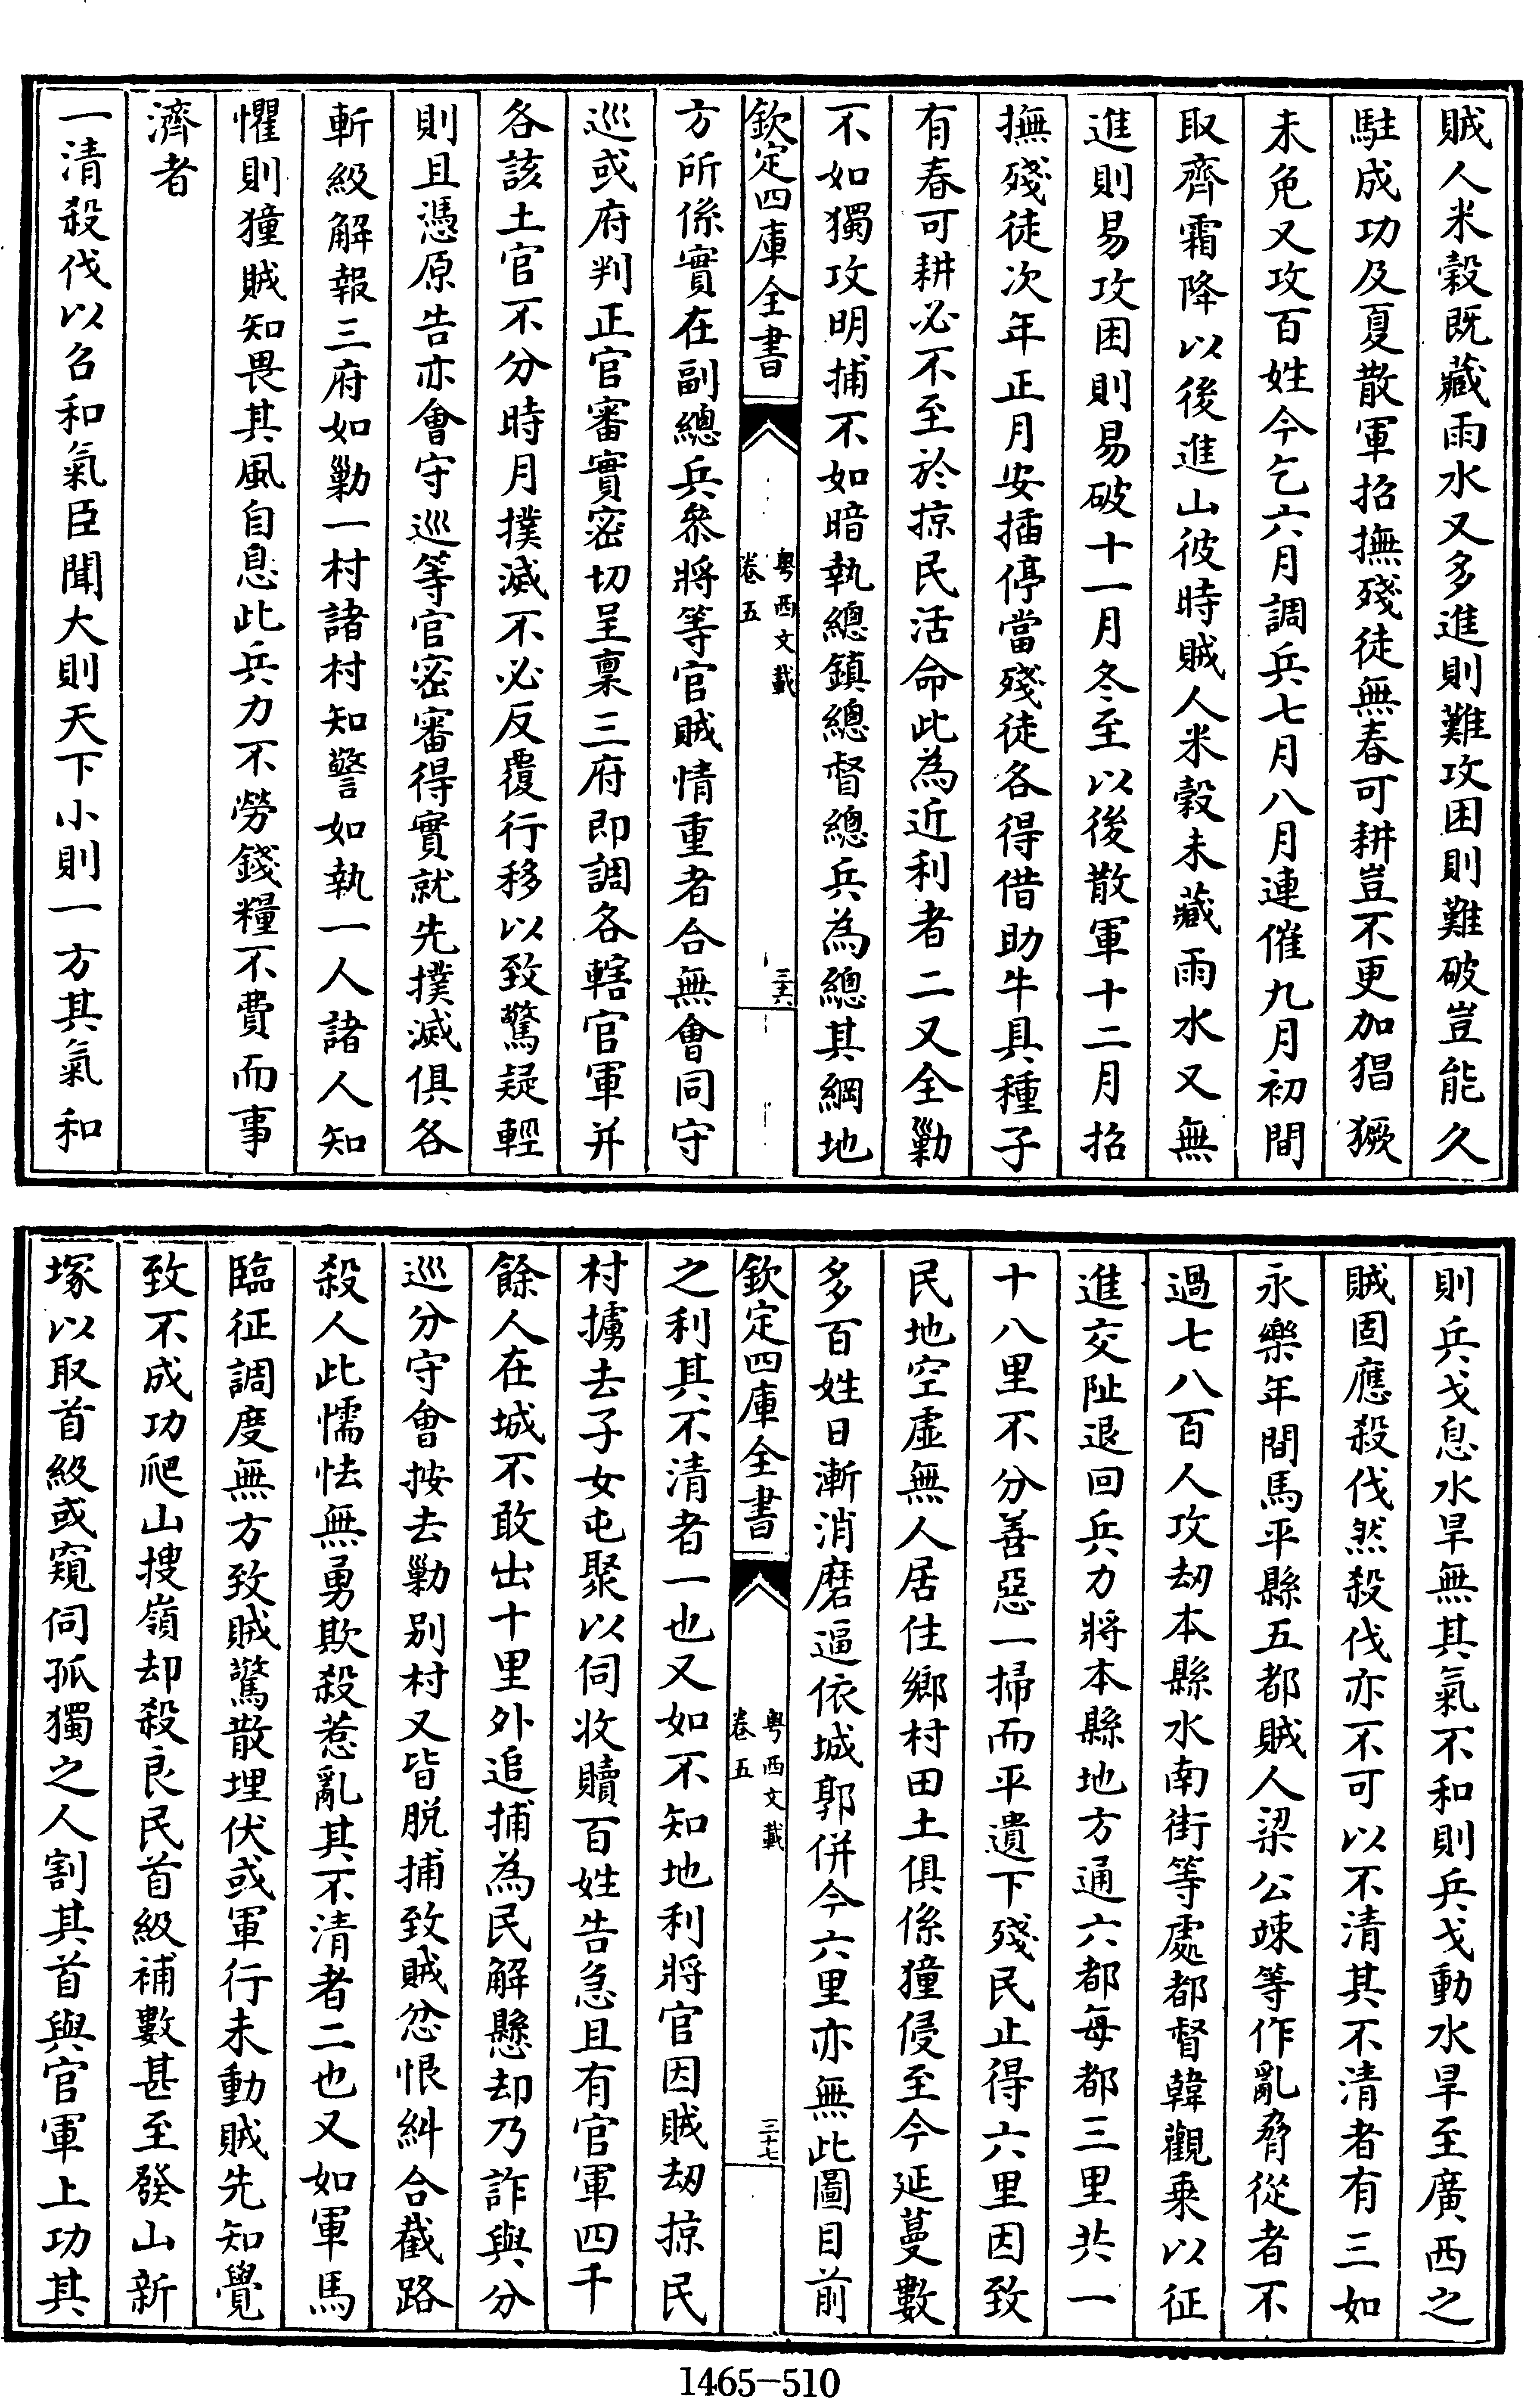 賊人米穀既藏雨水又多進則難攻困則難破豈能久
駐成功及夏散軍招撫殘徒無春可耕豈不更加猖獗
未免又攻百姓今乞六月調兵七月八月連催九月初間
取齊霜降以後進山彼時賊人米穀未藏雨水又無
進則易攻困則易破十一月冬至以後散軍十二月招
撫殘徒次年正月安插停當殘徒各得借助牛具種子
有春可耕必不至於掠民活命此為近利者二又全勦
不如獨攻明捕不如暗執總鎮總督總兵為總其綱地
欽定四庫全書
粤西文載
卷五
三十六
方所係實在副總兵參將等官賊情重者合無會同守
巡或府判正官審實密切呈稟三府即調各轄官軍并
各該土官不分時月撲滅不必反覆行移以致驚疑輕
則且憑原告亦會守巡等官密審得實就先撲滅俱各
斬級解報三府如勦一村諸村知警如執一人諸人知
懼則獞賊知畏其風自息此兵力不勞錢糧不費而事
濟者
一清殺伐以召和氣臣聞大則天下小則一方其氣和
則兵戈息水旱無其氣不和則兵戈動水旱至廣西之
賊固應殺伐然殺伐亦不可以不清其不清者有三如
永樂年間馬平縣五都賊人梁公竦等作亂脅從者不
過七八百人攻刼本縣水南街等處都督韓觀乗以征
進交阯退回兵力將本縣地方通六都每都三里共一
十八里不分善惡一掃而平遺下殘民止得六里因致
民地空虛無人居住鄉村田土俱係獞侵至今延蔓數
多百姓日漸消磨逼依城郭併今六里亦無此圖目前
欽定四庫全書
粤西文載
卷五
三十七
之利其不清者一也又如不知地利將官因賊刼掠民
村擄去子女屯聚以伺收贖百姓告急且有官軍四千
餘人在城不敢出十里外追捕為民解懸却乃詐與分
巡分守會按去勦别村又皆脱捕致賊忿恨糾合截路
殺人此懦怯無勇欺殺惹亂其不清者二也又如軍馬
臨征調度無方致賊驚散埋伏或軍行未動賊先知覺
致不成功爬山搜嶺却殺良民首級補數甚至發山新
塚以取首級或窺伺孤獨之人割其首與官軍上功其
1465-510